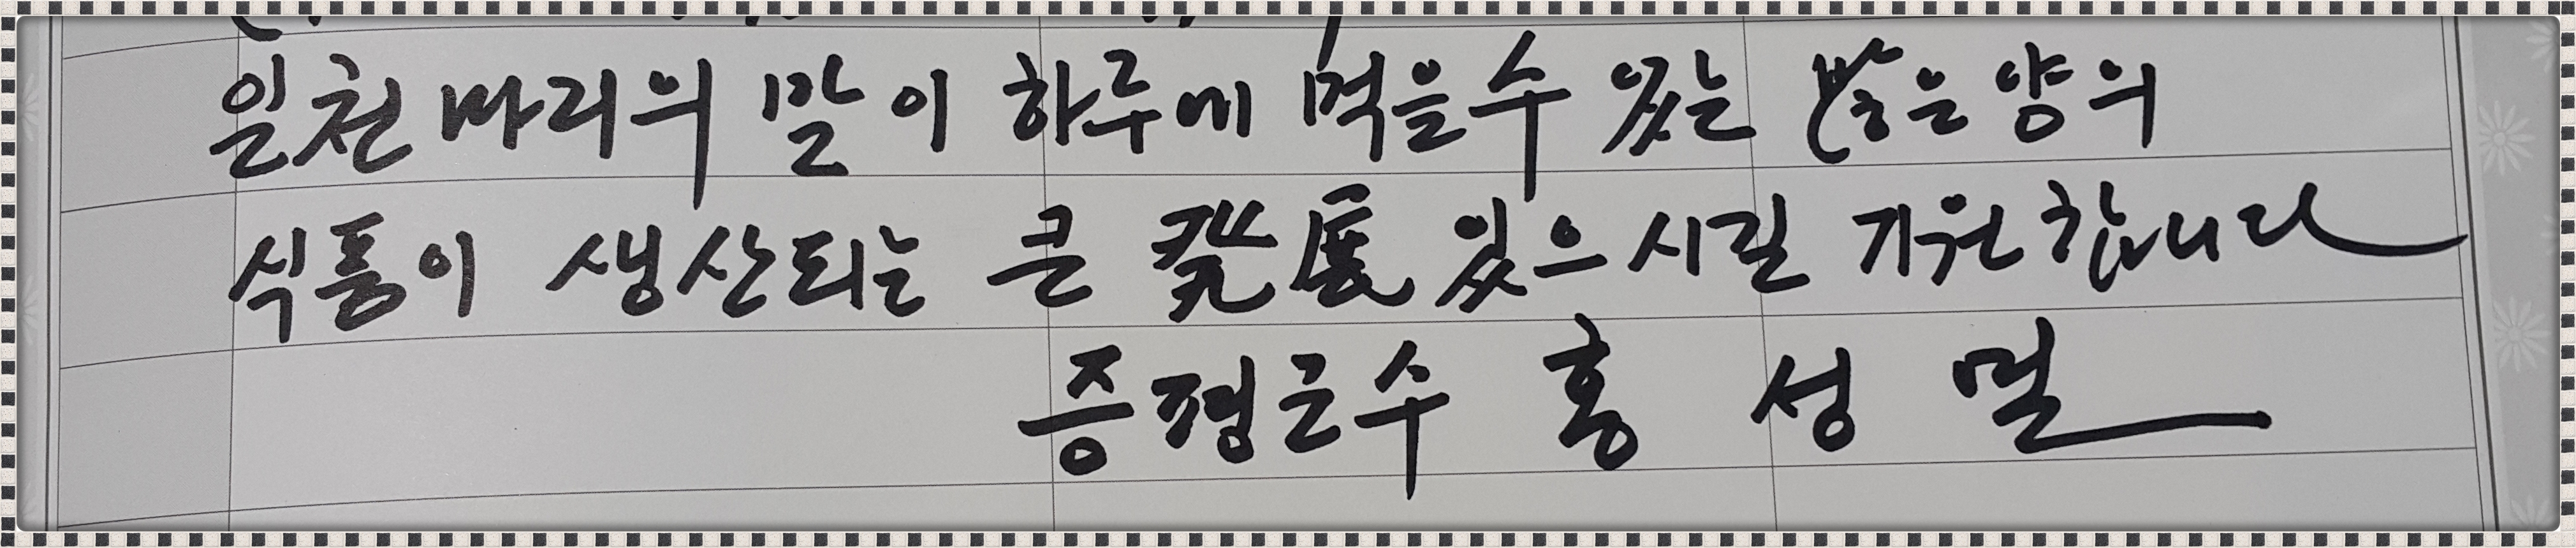 일천 마리의 말이 하루에 먹을수 있는 많은 양의
식품이 생산되는 큰 發展 있으시길 기원합니다
증평군수 홍 성 열